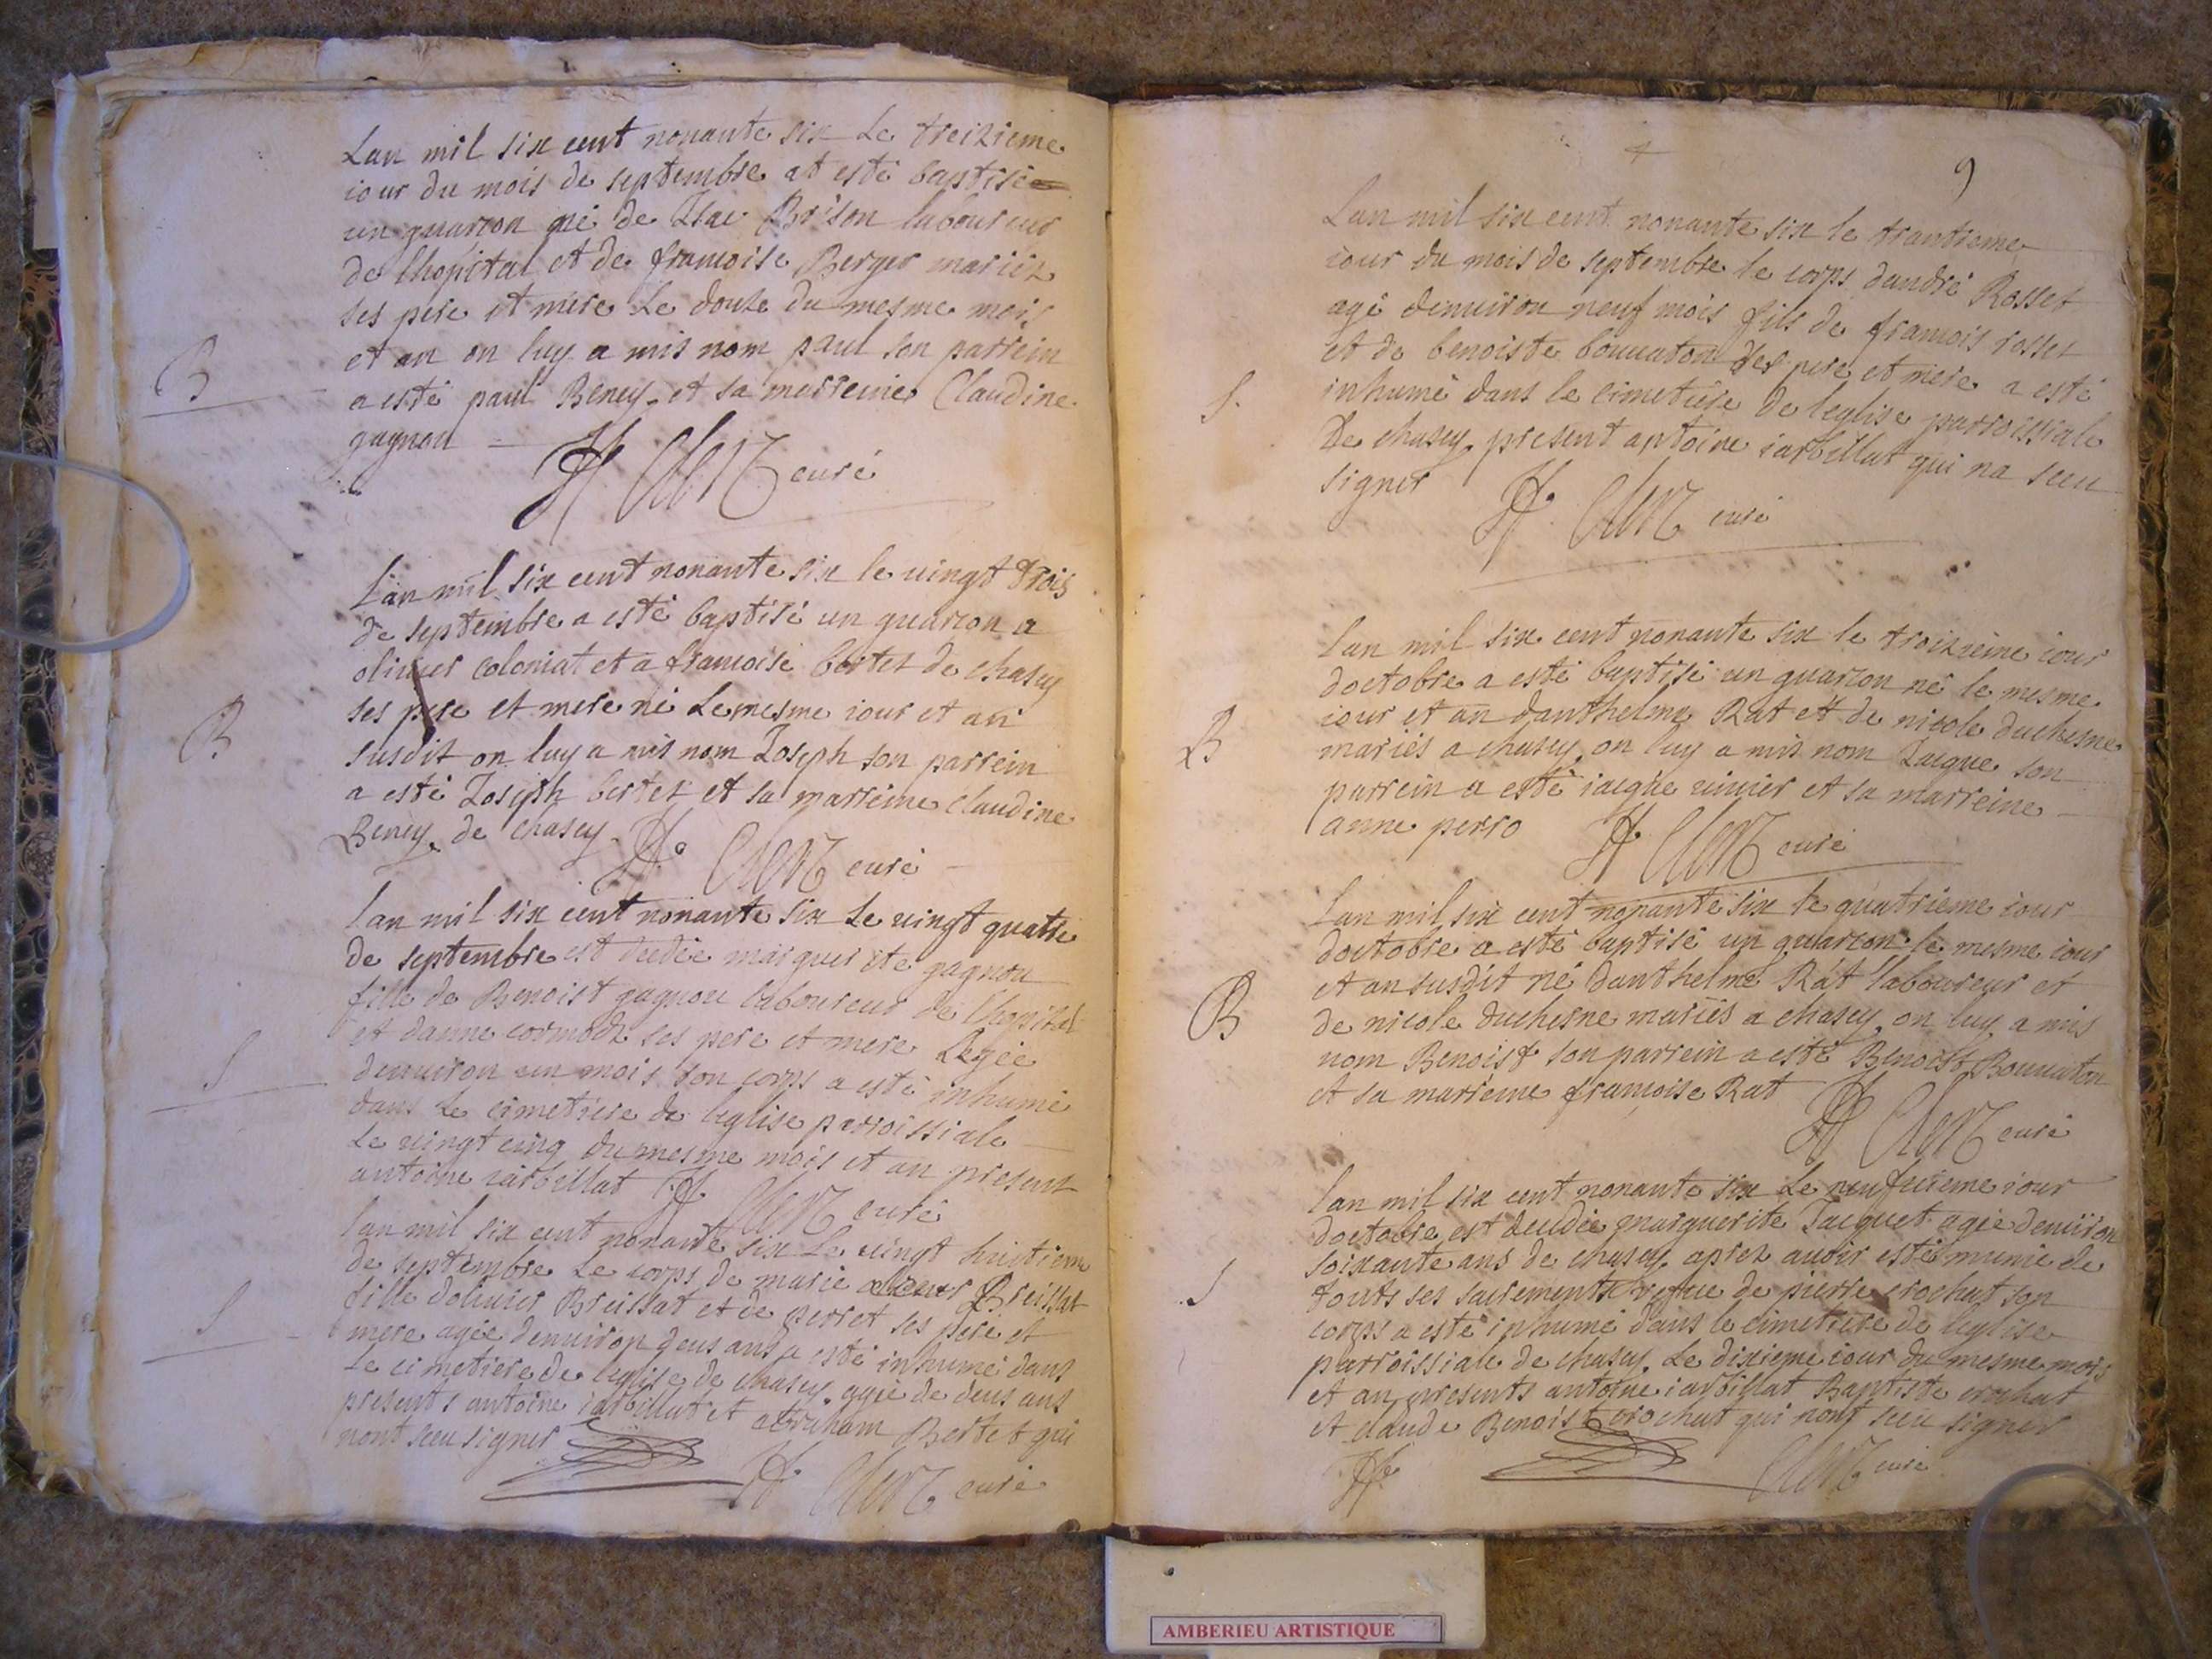 Lan mil six cent nonante six Le treizieme
iour du mois de septembre at esté baptisé
un guarcon né de Isac Brison laboureur
de lhopital et de francoise Berger mariéz
ses pere et mere Le douze du mesme mois
et an on luy a mis nom paul son parrein
B
a esté paul Beney et sa marreine Claudine
gagnon
H Clerc curé
Lan mil six cent nonante six le uingt trois
de septembre a esté baptisé un guarcon a
oliuier coloniat et a francoise bertet de chasey
ses pere et mere né Le mesme iour et an
B
susdit on luy a mis nom Ioseph son parrein
a esté Ioseph bertet et sa marreine claudine
Beney de chasey
H. Clerc curé
lan mil six cent nonante six Le uingt quatre
de septembre est decdée marguerite gagnon
fille de Benoist gagnon laboureur de lhopital
et danne cormod ses pere et mere Legée
S
denuiron un mois son corps a esté inhumé
dans Le cimetiere de leglise parroissiale
Le uingt cinq du mesme mois et an present
antoine iarbillat
H. Clerc curé
lan mil six cent nonante six Le uingt huitieme
de septembre Le corps de marie Breissat
fille doliuier Breissat et de perret ses pere et
S
mere agée denuiron deus ans a esté inhumé dans
Le cimetiere de leglise de chasey agée de deus ans
presents antoine iarbillat et abraham Bertet qui
nont sceu signer
H. Clerc curé
4
9
Lan mil six cent nonante six le trantieme
iour du mois de septembre le corps dandré Rosset
agé denuiron neuf mois fils de francois rosset
et de benoiste bouuaton ses pere et mere a esté
S.
inhumé dans le cimetiere de leglise parroissiale
De chasey present antoine iarbillat qui na sceu
signer
H. Clerc curé
lan mil six cent nonante six le troizieme iour
doctobre a esté baptisé un guarcon né le mesme
iour et an danthelme Rat et de nicole duchesne
B
mariés a chasey on luy a mis nom Iacque son
parrein a esté iacque uiuier et sa marreine
anne perro
H Clerc curé
Lan mil six cent nonante six le quatrieme iour
doctobre a esté baptisé un guarcon le mesme iour
et an susdit né danthelme Rat laboureur et
B
de nicole duchesne mariés a chasey on luy a mis
nom Benoist son parrein a esté Benoist Bouuaton
et sa marreine francoise Rat
H Clerc curé
lan mil six cent nonante six Le neufuieme iour
doctobre est decdée marguerite Iacquet agée denuiron
soixante ans de chasey aprez auoir esté munie de
S
touts ses sacrements uefue de pierre crochat son
corps a esté inhumé dans le cimetiere de leglise
parroissiale de chasey Le dixieme iour du mesme mois
et an presents antoine iarbillat Baptiste crochat
et claude Benoist crochat qui nont sceu signer
H. Clerc curé
AMBERIEU ARTISTIQUE